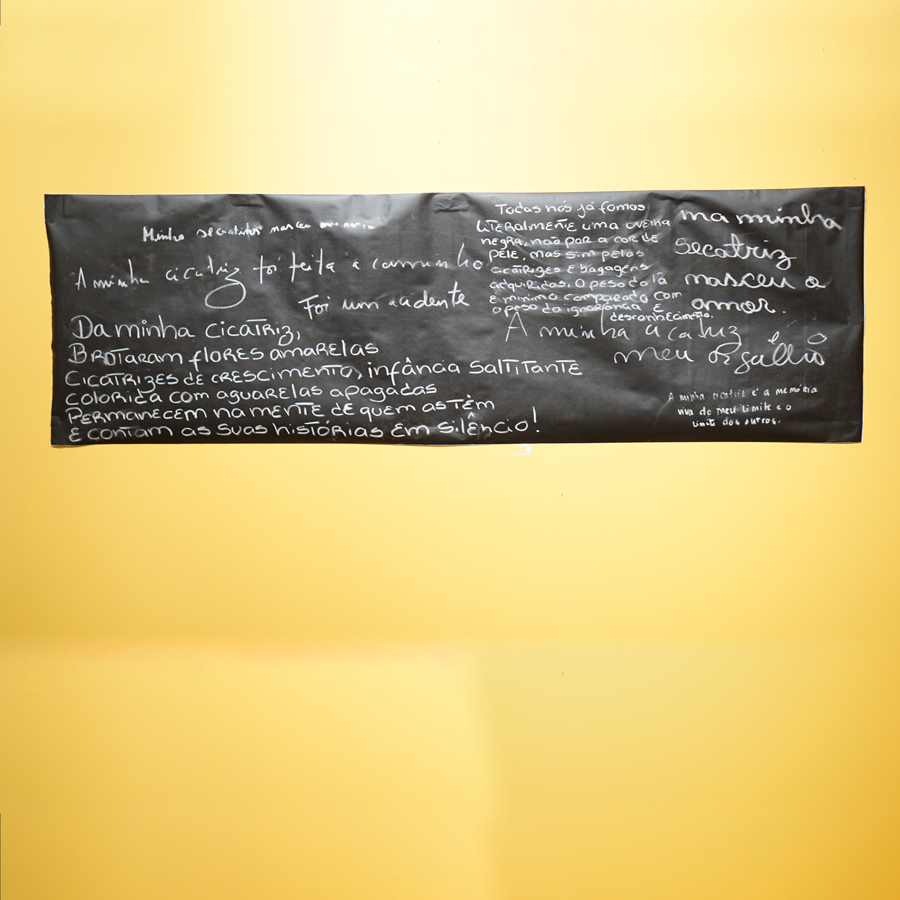 Minha secatriz nasceu
A minha cicatriz foi feita a caminho
Foi um acidente
Da minha cicatriz,
Brotaram flores amarelas
Cicatrizes de crescimento, infância saltitante
colorida com aguarelas apagadas
Permanecem na mente de quem as têm
E contam as suas histórias em silêncio!
Todas nós já fomos
literalmente uma ovelha
negra, não por a cor de
pele, mas sim pelas
cicatrizes e bagagens
adquiridas. O peso da lã
é mínimo comparado com
o peso da ignorância e
desconhecimento.
na minha
secatriz
nasceu o
amor.
A minha cicatriz
é o
meu orgalho
A minha cicatriz é a memória
viva do meu limite e o
limite dos outros.